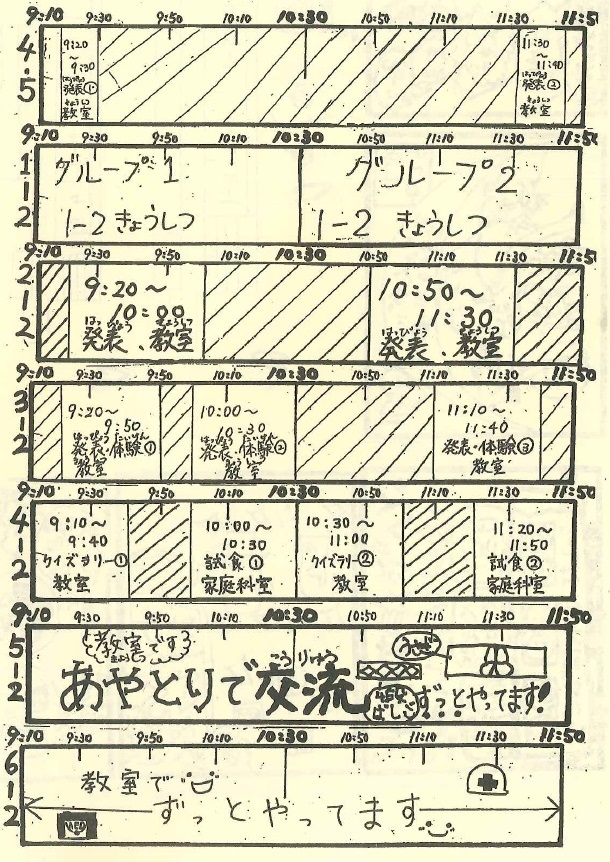 9:10 9:30 9:50 10:10 10:30 10:50 11:10 11:30 11:50
4.5
9:20
～
9:30
発表①
教室
11:30
～
11:40
発表②
教室
9:10 9:30 9:50 10:10 10:30 10:50 11:10 11:30 11:50
1-2
グループ1
1-2 きょうしつ
グループ2
1-2 きょうしつ
9:10 9:30 9:50 10:10 10:30 10:50 11:10 11:30 11:50
2-2
9:20～
10:00
はっぴょう きょうしつ
発表、教室
10:50～
11:30
はっぴょう きょうしつ
発表、教室
9:10 9:30 9:50 10:10 10:30 10:50 11:10 11:30 11:50
3-2
9:20～
9:50
はっぴょう たいけん
発表・体験①
教室
10:00～
10:30
はっぴょう たいけん
発表・体験②
教室
11:10～
11:40
発表・体験③
教室
9:10 9:30 9:50 10:10 10:30 10:50 11:10 11:30 11:50
4-2
9:10～
9:40
クイズラリー①
教室
10:00～
10:30
試食①
家庭科室
10:30～
11:00
クイズラリー②
教室
11:20～
11:50
試食②
家庭科室
9:10 9:30 9:50 10:10 10:30 10:50 11:10 11:30 11:50
5-2
教室です
きょうしつ
こうりゅう
あやとりで交流
ずっとやってます!
9:10 9:30 9:50 10:10 10:30 10:50 11:10 11:30 11:50
6-2
教室で
ずっとやってます